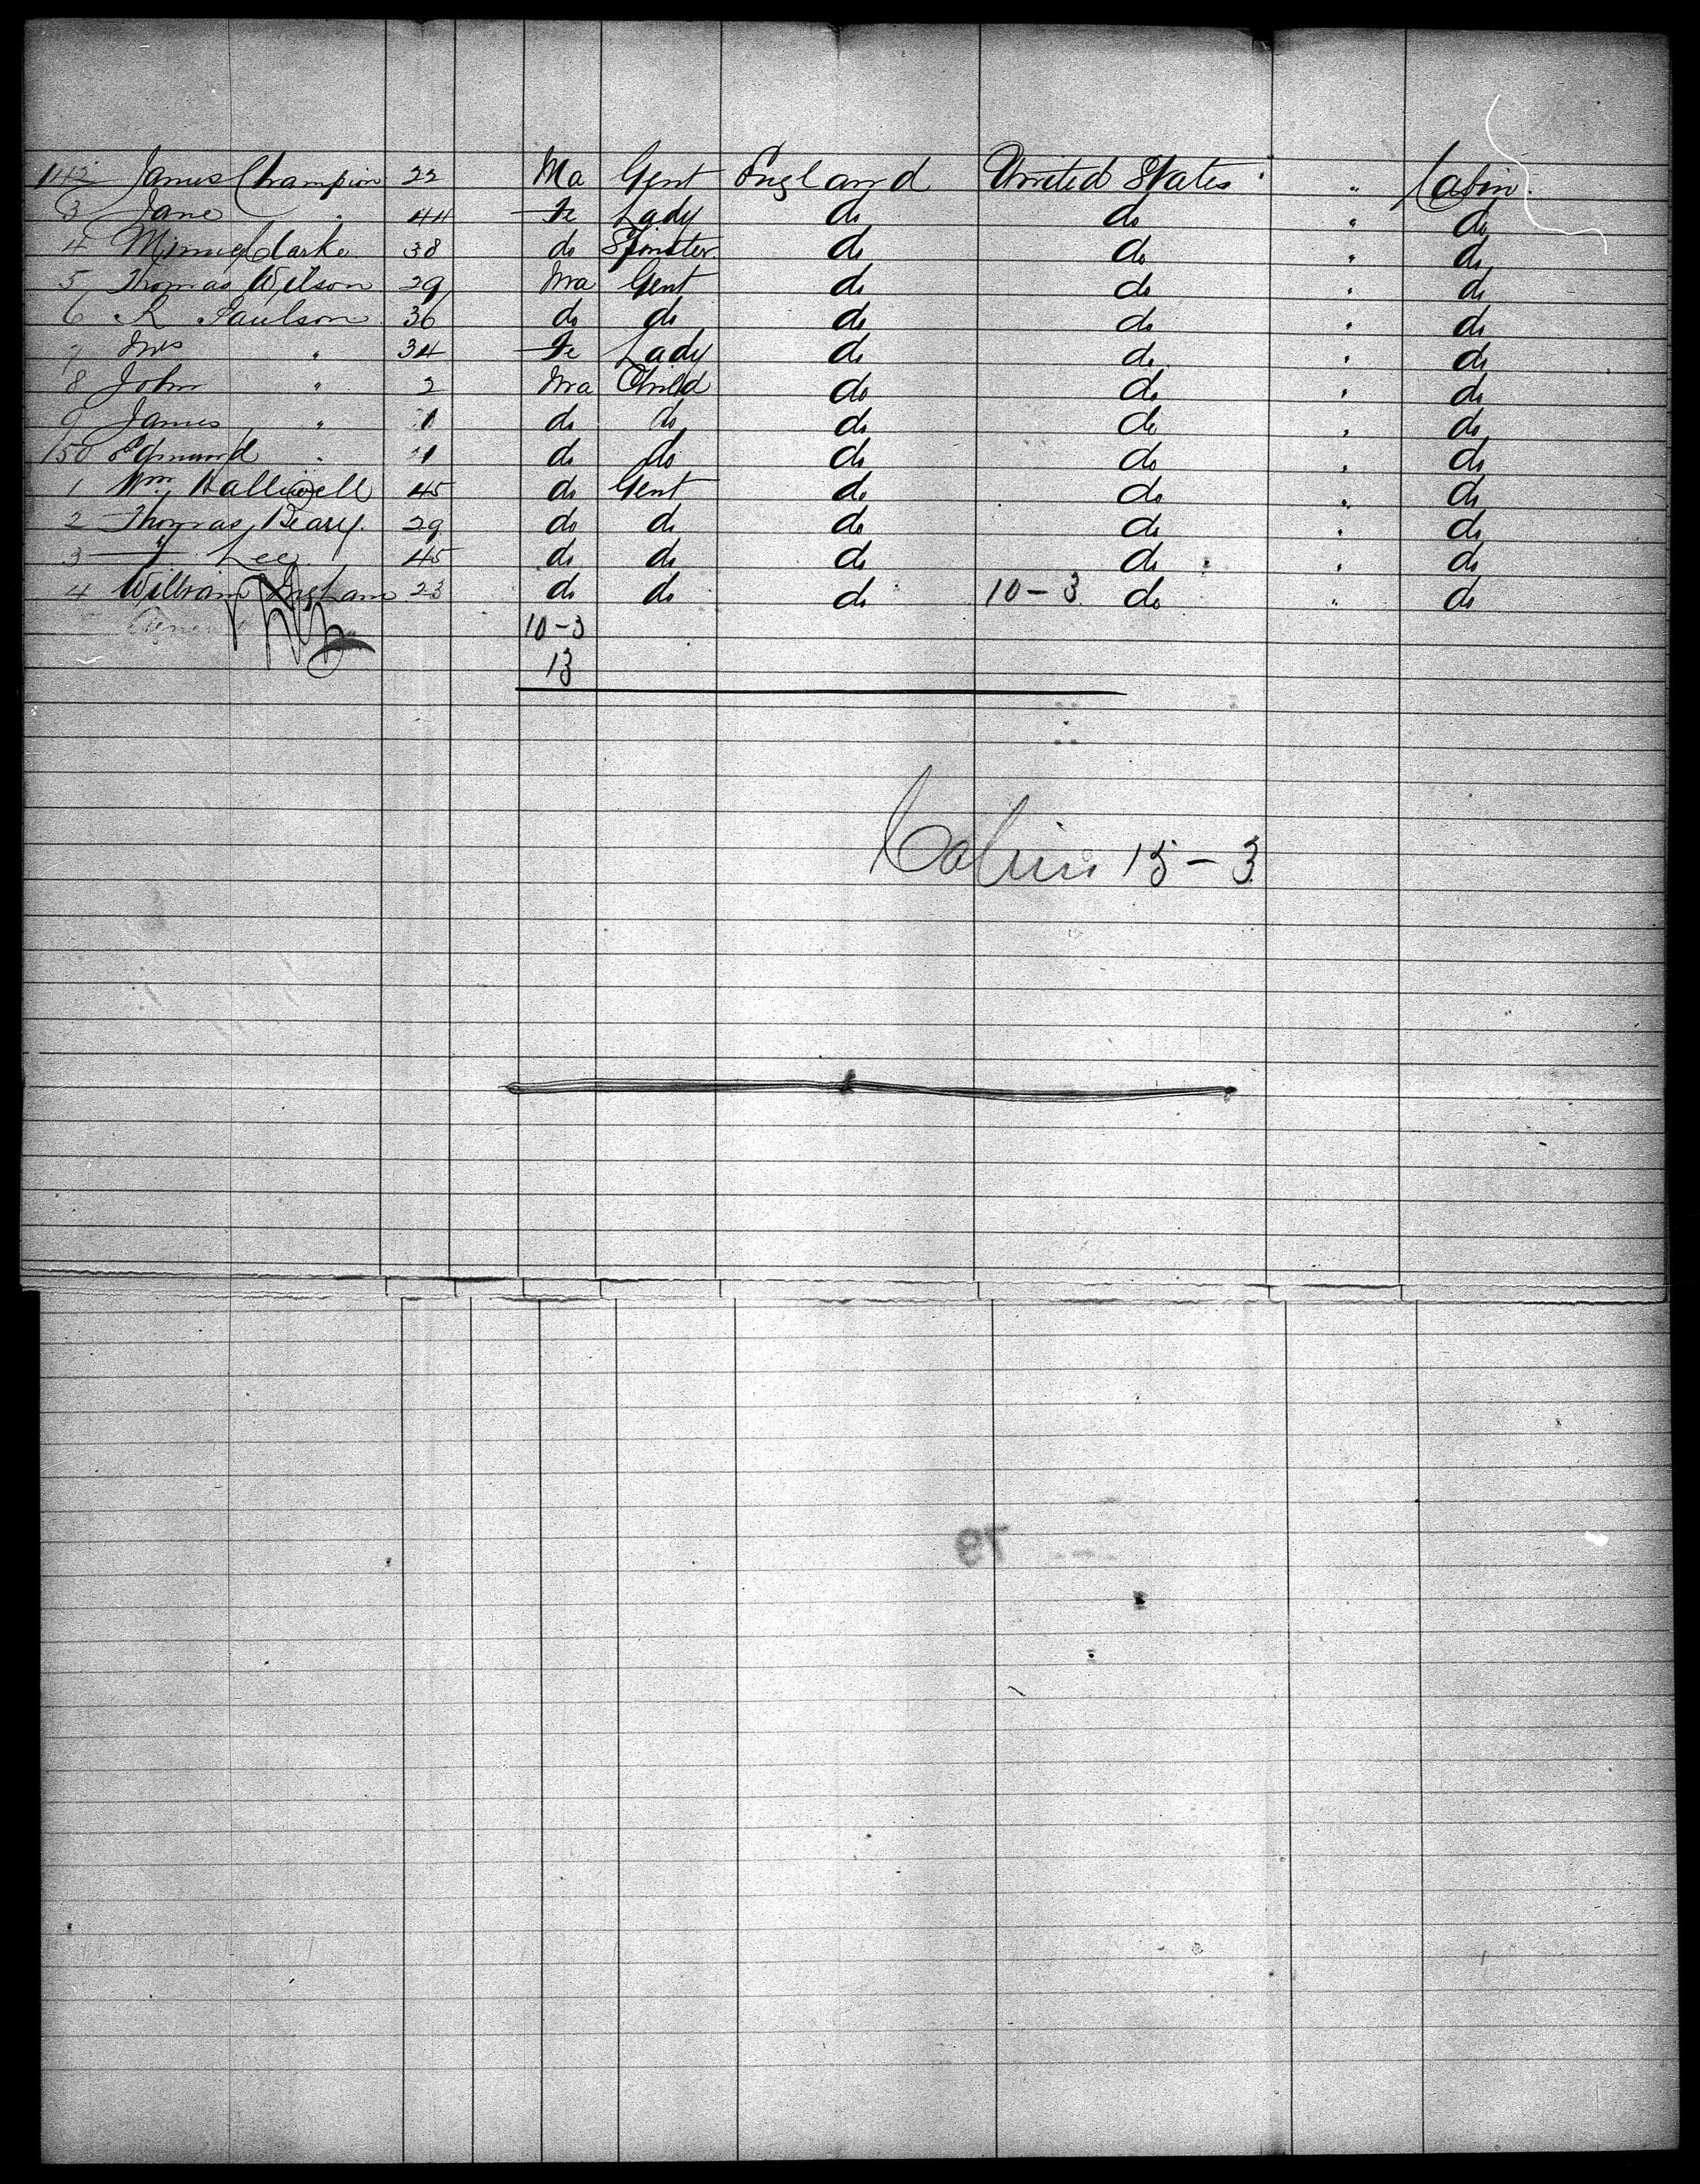 142 James Champion 22 Ma Gent England United States " Cabin.
3 Jane " 44 Fe Lady do do " do
4 Minnie Clarke 38 do Spinster do do " do
5 Thomas Wilson 29 Ma Gent do do " do
6 R Paulson 36 do do do do " do
7 Mrs " 34 Fe Lady do do " do
8 John " 2 Ma Child do do " do
9 James " 1 do do do do " do
150 Edmund " 1 do do do do " do
1 Wm Halliwell 45 do Gent do do " do
2 Thomas 29 do do do do " do
3 " Lee 45 do do do do " do
4 William Ingham 23 do do do 10-3 do " do
10-3
13
Cabin 15-3